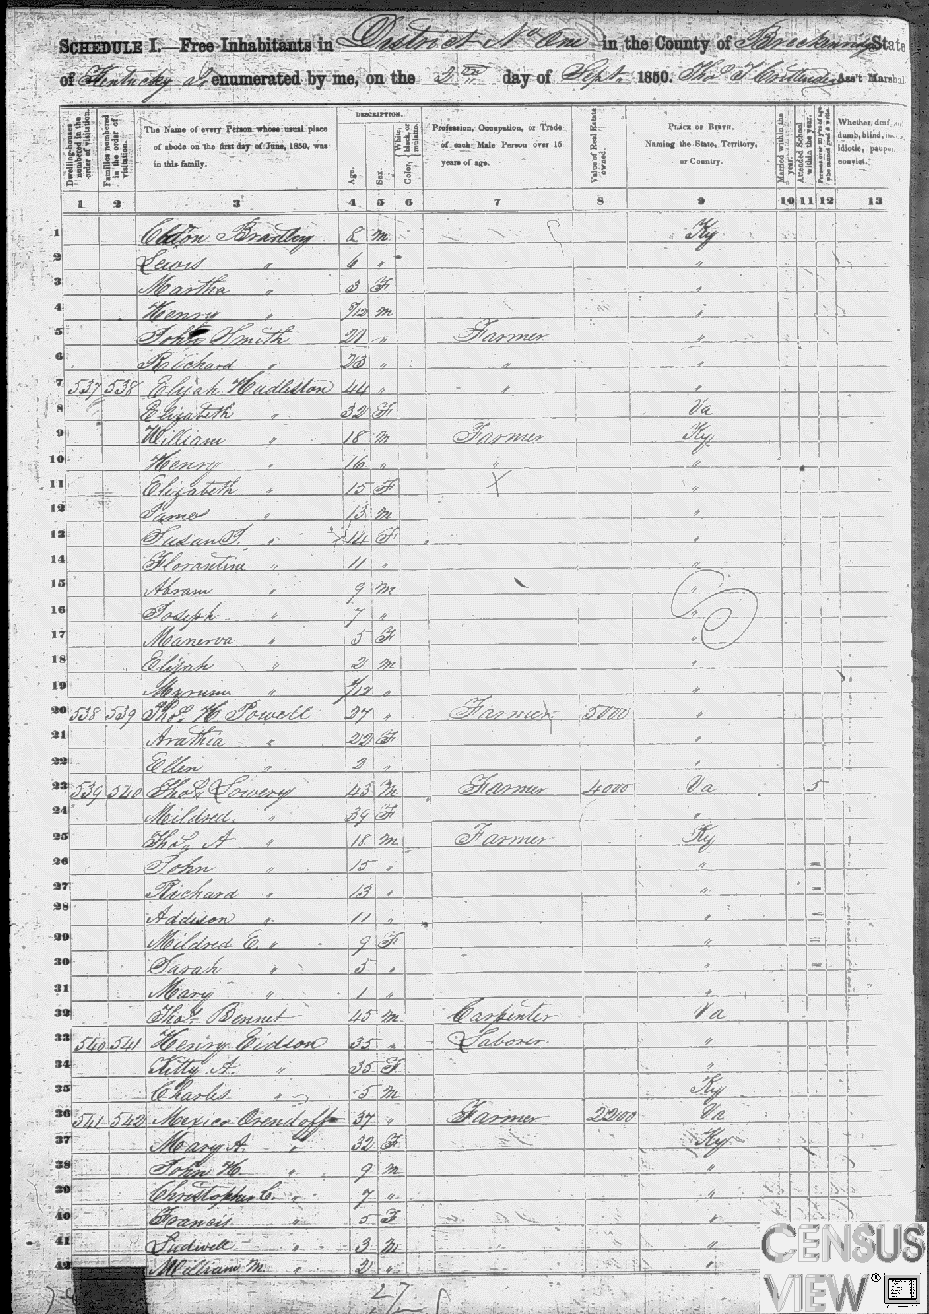 SCHEDULE I.—Free Inhabitants in District No One in the County of Breckenridge State
of Kentucky enumerated by me, on the day of Sept. 1850. Thos Ass't Marshal
Dwelling-houses numbered in the order of visitation.
Families numbered in the order of visitation.
The Name of every Person whose usual place of abode on the first day of June, 1850, was in this family.
DESCRIPTION.
Age.
Sex.
Color, White, black, or mulatto.
Profession, Occupation, or Trade of each Male Person over 15 years of age.
Value of Real Estate owned.
PLACE OF BIRTH. Naming the State, Territory, or Country.
Married within the year.
Attended School within the year.
Persons over 20 y'rs of age who cannot read & write.
Whether deaf and dumb, blind, insane, idiotic, pauper, convict.
1 2 3 4 5 6 7 8 9 10 11 12 13
1 Brantley 8 m Ky
2 Lewis " 6 " "
3 Martha " 3 F "
4 Henry " /12 m "
5 John Smith 21 " Farmer "
6 Richard " 23 " " "
7 537 538 Elijah Hudleston 44 " " "
8 Elizabeth " 32 F Va
9 William " 18 m Farmer Ky
10 Henry " 16 " " "
11 Elizabeth " 15 F "
12 James " 13 m "
13 Susan F. " 14 F "
14 Florantine " 11 " "
15 Abram " 9 m "
16 Joseph " 7 " "
17 Manerva " 5 F "
18 Elijah " 2 m "
19 " /12 " "
20 538 539 Thos. H Powell 27 " Farmer 5000 "
21 Arathia " 22 F "
22 Ellen " 3 " "
23 539 540 Thos Lowery 45 m Farmer 4000 Va 5
24 Mildred " 39 F "
25 Thos A " 18 m Farmer Ky
26 John " 15 " "
27 Richard " 13 " "
28 Addison " 11 " "
29 Mildred E. " 9 F "
30 Sarah " 5 " "
31 Mary " 1 " "
32 Thos. Bennet 45 m Carpenter Va
33 540 541 Henry Eidson 35 " Laborer "
34 Kitty A. " 35 F "
35 Charles " 5 m Ky
36 541 542 Mexico Orendoff 37 " Farmer 2200 Va
37 Mary A. " 32 F Ky
38 John H. " 9 m "
39 Christopher C. " 7 " "
40 Francis " 5 F "
41 Ludwell " 3 m "
42 William M. " 2 " "
27
CENSUS
VIEW®